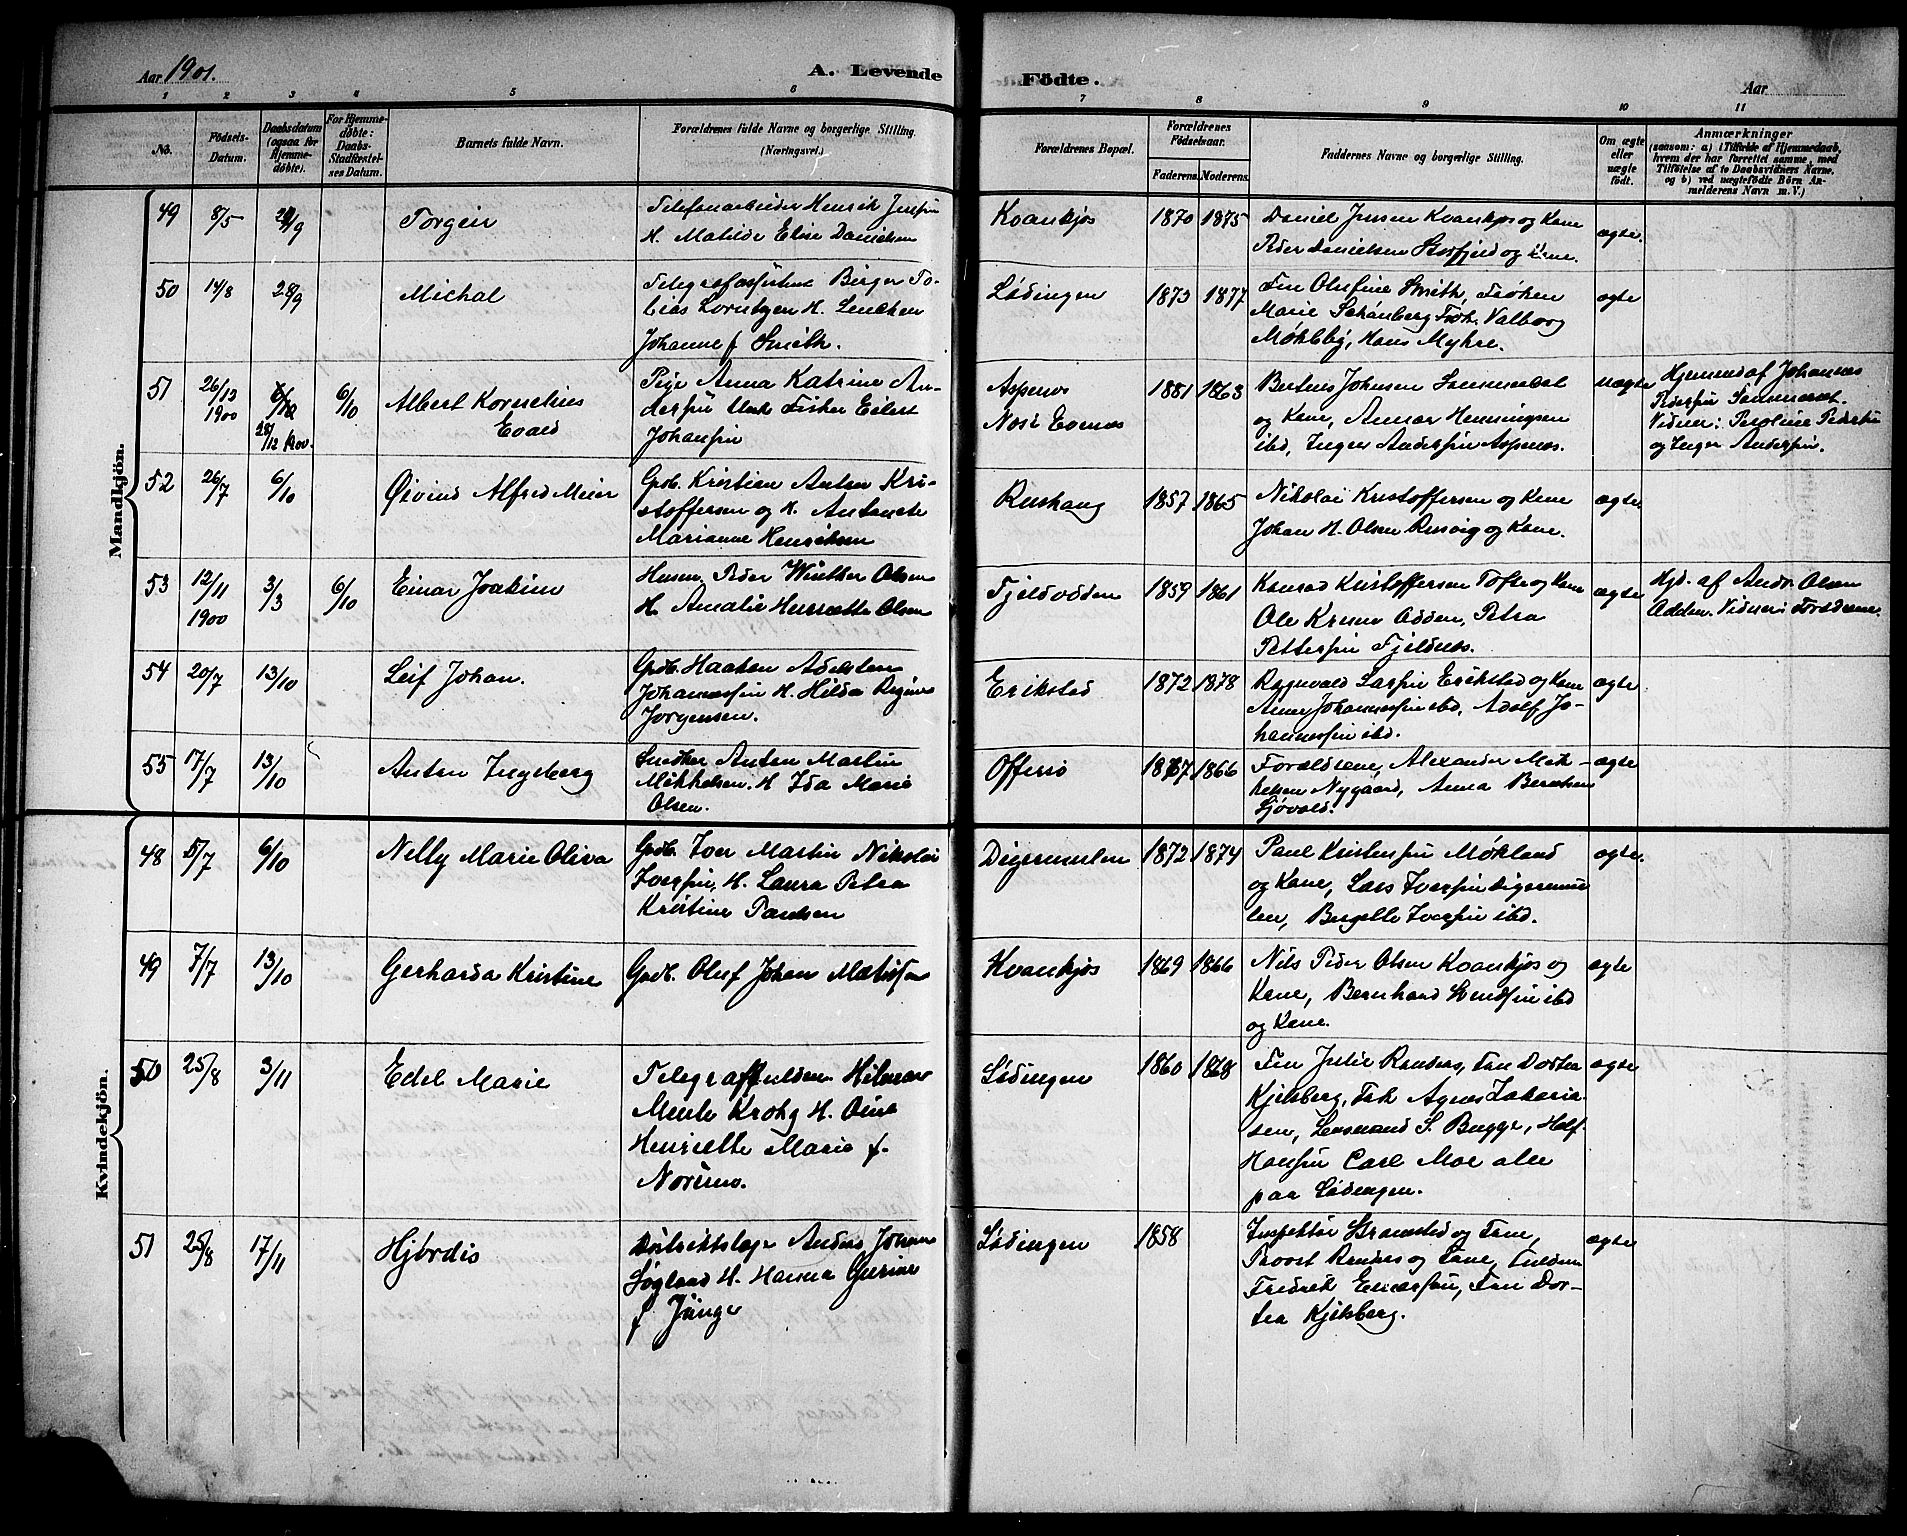 Aar 1901.
A. Levende Födte.
Aar
1 2 3 4 5 6 7 8 9 10 11
No.
Födsels-Datum.
Daabsdatum (ogsaa for Hjemmedöbte).
For Hjemmedöbte: Daabs-Stadfæstelses Datum.
Barnets fulde Navn.
Forældrenes fulde Navne og borgerlige Stilling. (Næringsvei.)
Forældrenes Bopæl.
Forældrenes Födselsaar.
Faderens. Moderens.
Faddernes Navne og borgerlige Stilling.
Om ægte eller uægte födt.
Anmærkninger
(saasom: a) i Tilfælde af Hjemmedaab, hvem der har forrettet samme, med Tilföielse af to Daabsvidners Navne, og b) ved uægtefödte Börn Anmelderens Navn m. V.)
Mandkjön.
49 8/5 29/9 Torgeir
Telefonarbeider Henrik Jensen
H. Matilde Elise Danielsen
Kvankjos 1870 1875
Daniel Jensen Kvankjos og Kone
Peder Danielsen Storfjeld og Kone.
ægte.
50 14/8 28/9 Michal
Telegrafassistent Birger To-
bias Lorntzen H. Lenchen
Johanne f Smith.
Lødingen 1873 1877
Fru Olufine Smith, Frøken
Marie Schønberg Frøk. Valborg
Møkleby, Hans Myhre.
ægte
51 26/12 1900 28/12 1900. 6/10 Albert Kornelius
Evald
Pige Anna Katrine An-
dersen Ungk. Fisker Eilert
Johansen
Aspenes
Nost Evenes
1881 1863
Berteus Johnsen Sommerdal
og Kone, Annar Henningsen
ibd, Inger Andersen Aspenes.
uægte
Hjemmed. af Johannes
Pedersen
Vidner: Peroline Pedersen
og Inger Andersen.
52 26/7 6/10 Øivind Alfred Meier
Grdb. Kristian Anton Kri-
stoffersen og H. Antonete
Marianne Henriksen
Rushaug 1857 1865
Nikolai Kristoffersen og Kone
Johan H. Olsen Rusvig og Kone.
ægte
53 12/11 1900 3/3 6/10 Einar Joakim
Husm. Peder Winther Olsen
H. Amalie Henriette Olsen
Fjeldvodden 1859 1861
Konrad Kristoffersen Tofte og Kone
Ole Olsen Odden, Petra
Pettersen Fjeldnes.
ægte
Hjd. af Andr. Olsen
Odden. Vidner: Forældrene.
54 20/7 13/10 Leif Johan.
Grdb. Haaken Adelsten
Johannessen H. Hilda Regine
Jørgensen.
Erikstad 1872 1878
Ragnvald Larsen Erikstad og Kone
Anna Johannessen ibd, Adolf Jo-
hannessen ibd.
ægte
55 17/7 13/10 Anton Ingeberg
Snedker Anton Martin
Mikkelsen. H Ida Marie
Olsen.
Offersø 1867 1866
Forældrene, Alexander Mik-
kelsen Nygaard, Anna Berntsen
Sjøvold.
ægte
Kvindekjön.
48 5/7 6/10 Nelly Marie Oliva
Grdb. Iver Martin Nikolai
Iversen, H. Laura Petra
Kristine Paulsen
Digermulen 1872 1874
Paul Kristensen Møkland
og Kone, Lars Iversen Digermu-
len, Bergelle Iversen ibd.
ægte.
49 7/7 13/10 Gerharda Kristine
Grdb. Oluf Johan Matisen
Kvankjos 1869 1866
Nils Peder Olsen Kvankjos og
Kone, Bernhard ibd
og Kone.
ægte
50 25/8 3/11 Edel Marie
Telegraffuldm. Hilmar
Meule Krohg H. Oine
Henriette Marie f.
Norum.
Lødingen 1860 1868
Fru Julie Randers, Fru Dortea
Kjelsberg, Frk Agnes Zakaria-
sen, Lensmand S. Bugge, Half.
Hansen Carl Moe alle
paa Lødingen.
ægte
51 25/8 17/11 Hjørdis
Distriktslæge Anders Johan
Søgland H. Hanna Gurine
f Junge
Lødingen 1858
Inspektør Stramsted og Frue,
Provst Randers og Frue, Fuldm.
Fredrik Einarsen, Fru Dor-
tea Kjelsberg.
ægte